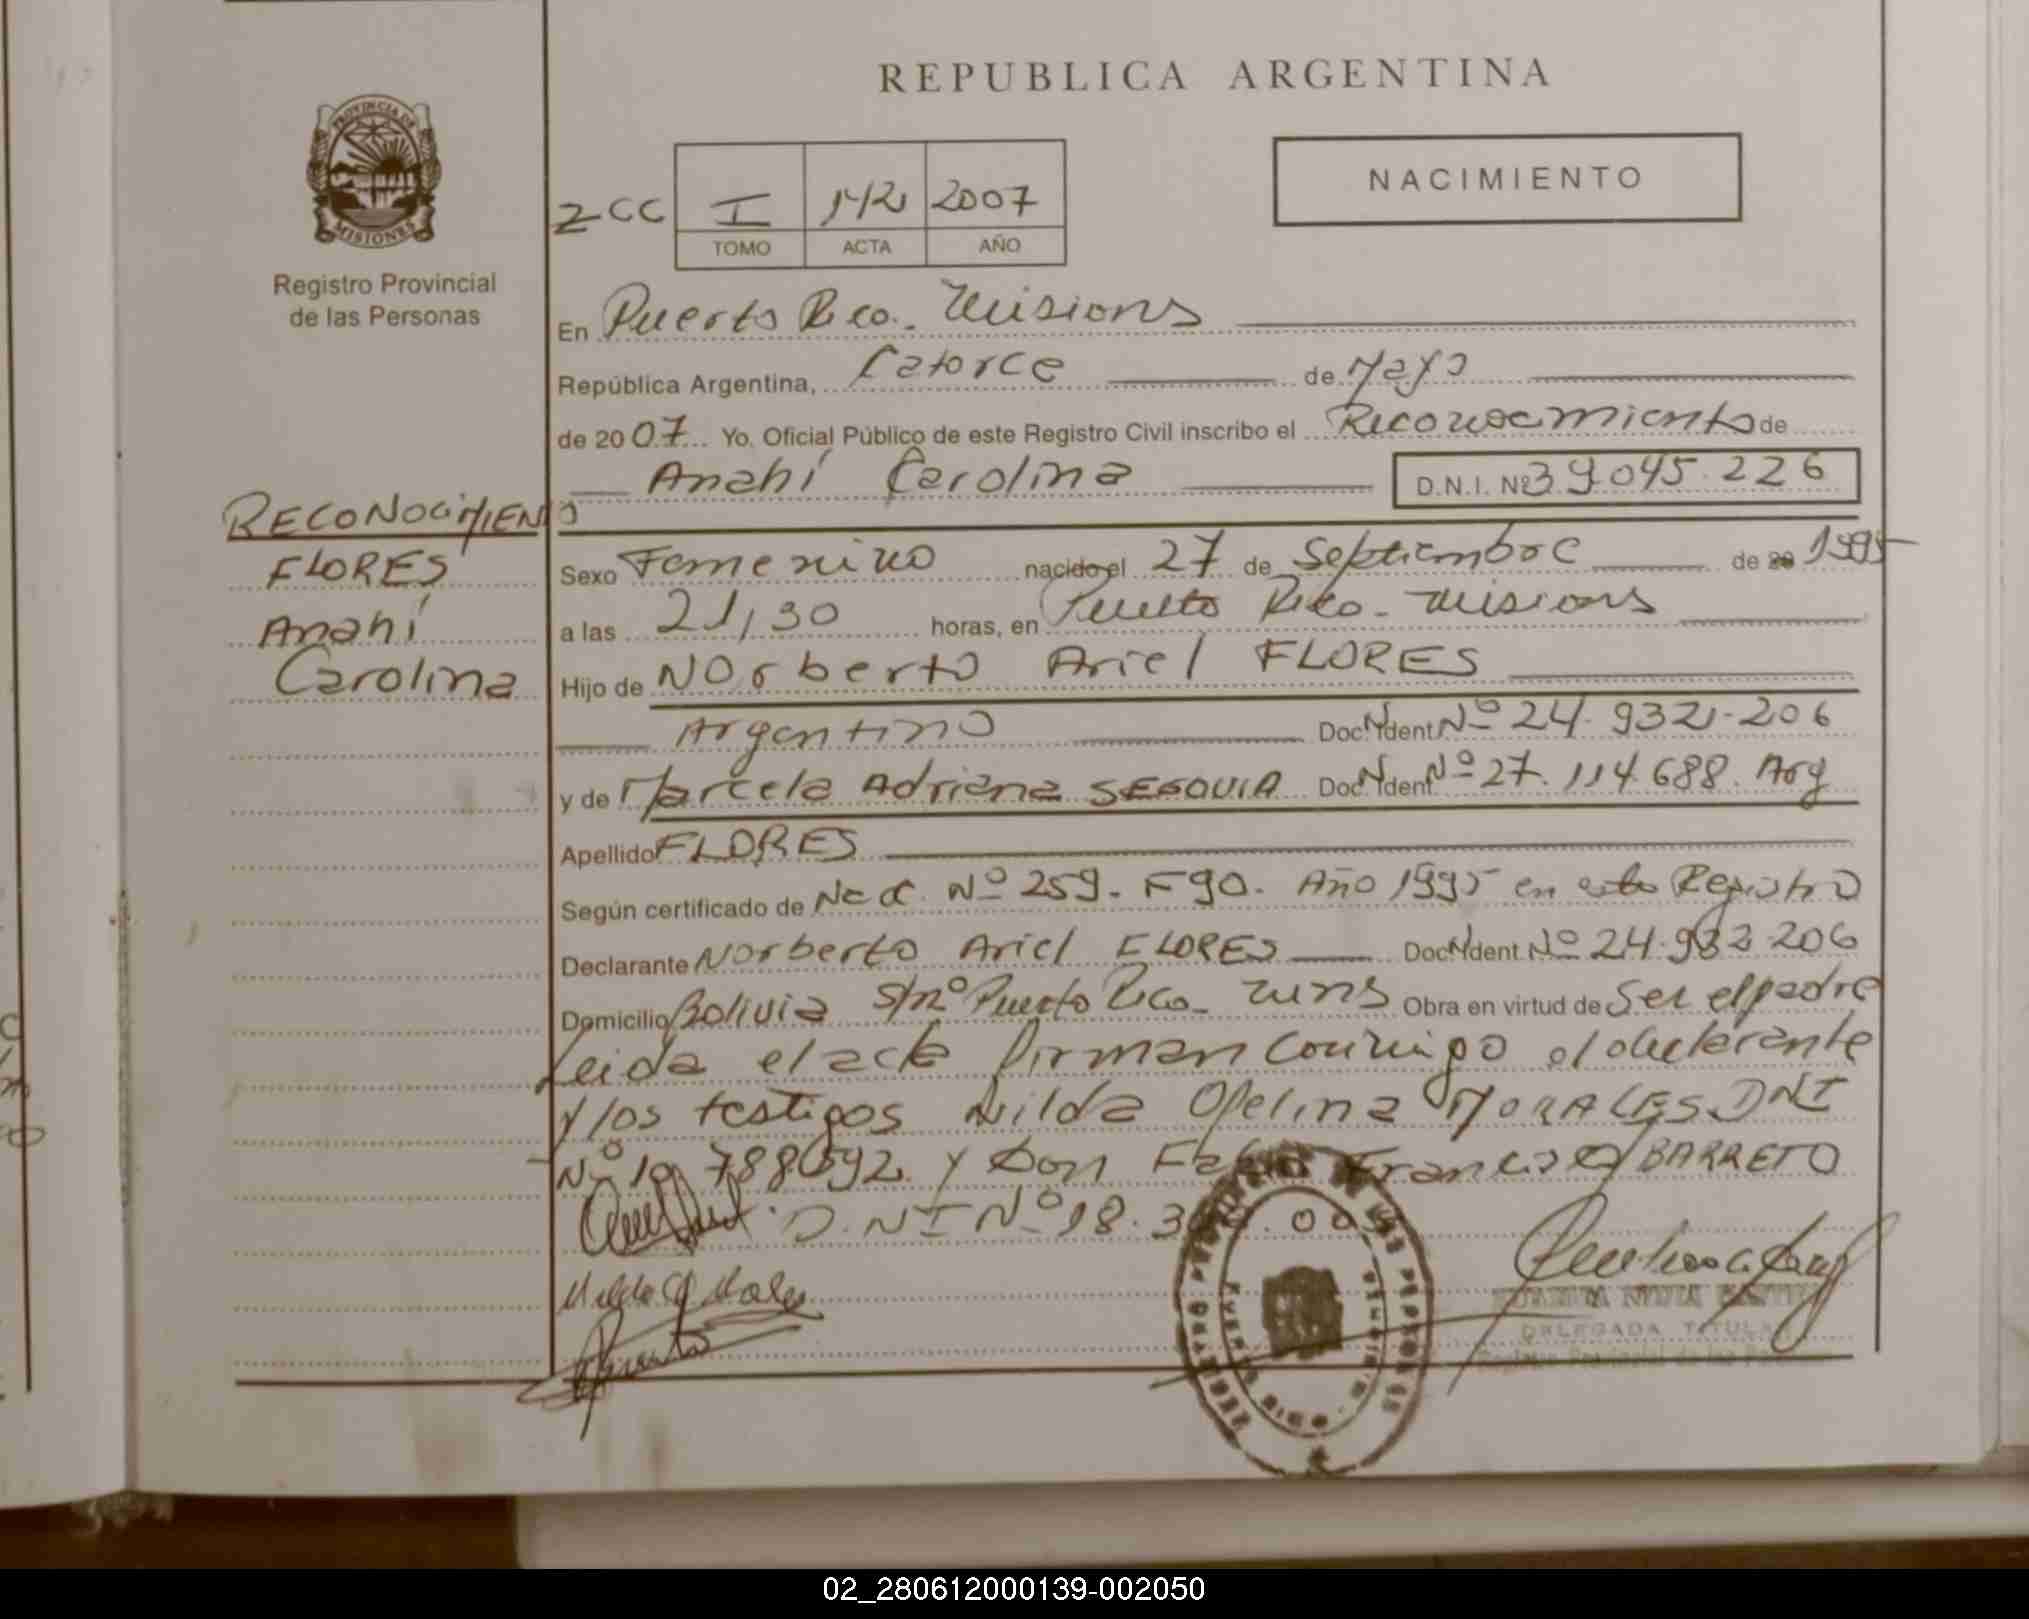 REPUBLICA ARGENTINA
PROVINCIA DE
MISIONES
Registro Provincial
de las Personas
2CC I 142 2007
TOMO ACTA AÑO
NACIMIENTO
En Puerto Rico. Misions
República Argentina, Catorce de Mayo
de 2007 Yo. Oficial Público de este Registro Civil inscribo el Reconocimiento de
Anahí Carolina D.N.I. Nº 39.045.226
RECONOCIMIENTO
FLORES
Anahí
Carolina
Sexo Femenino nacido el 27 de Septiembre de 20 1995
a las 21,30 horas, en Puerto Rico - Misions
Hijo de Norberto Ariel FLORES
Argentino Doc. Ident Nº 24.932.206
y de Marcela Adriana SEGOVIA Doc. Ident Nº 27.114.688. Arg
Apellido FLORES
Según certificado de Nac. Nº 259. F90. Año 1995 en este Registro
Declarante Norberto Ariel FLORES Doc. Ident. Nº 24.932.206
Domicilio Bolivia S/nº Puerto Rico - Mns Obra en virtud de Ser el padre
Leida el acta firman conmigo el declarante
y los testigos Nilda Ofelina MORALES DNI
Nº y Don Francisco BARRETO
D.NI Nº 18.
DELEGADA TITULAR
Registro Provincial de las
02_280612000139-002050